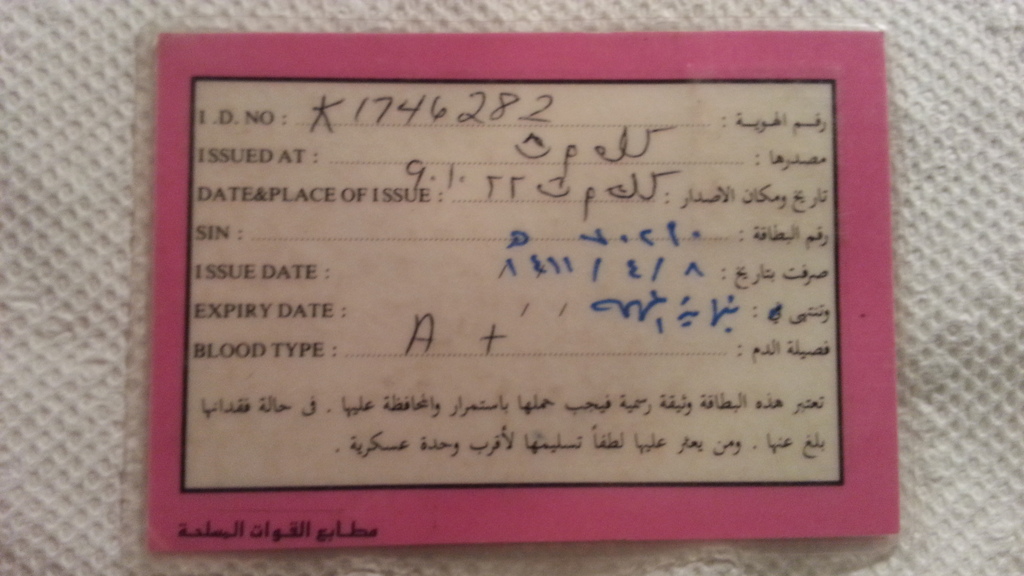 I.D. NO : K1746282 رقم الهوية :
ISSUED AT : مصدرها :
DATE&PLACE OF ISSUE : تاريخ ومكان الاصدار :
SIN : رقم البطاقة :
ISSUE DATE : صرفت بتاريخ : ٨ / ٤ /
EXPIRY DATE : / / وتنتهى في : نهاية
BLOOD TYPE : A + فصيلة الدم :
تعتبر هذه البطاقة وثيقة رسمية فيجب حملها باستمرار والمحافظة عليها . فى حالة فقدانها
بلغ عنها . ومن يعثر عليها لطفاً تسليمها لأقرب وحدة عسكرية .
مطابع القوات المسلحة